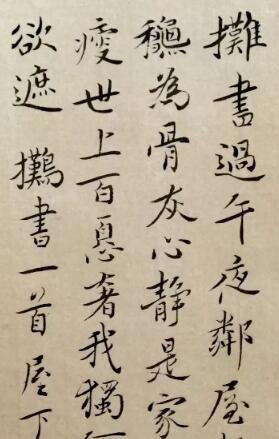 攤書過午夜鄰屋
為骨灰心静是家
世上百奢我獨
欲遮 攤書一首屋下